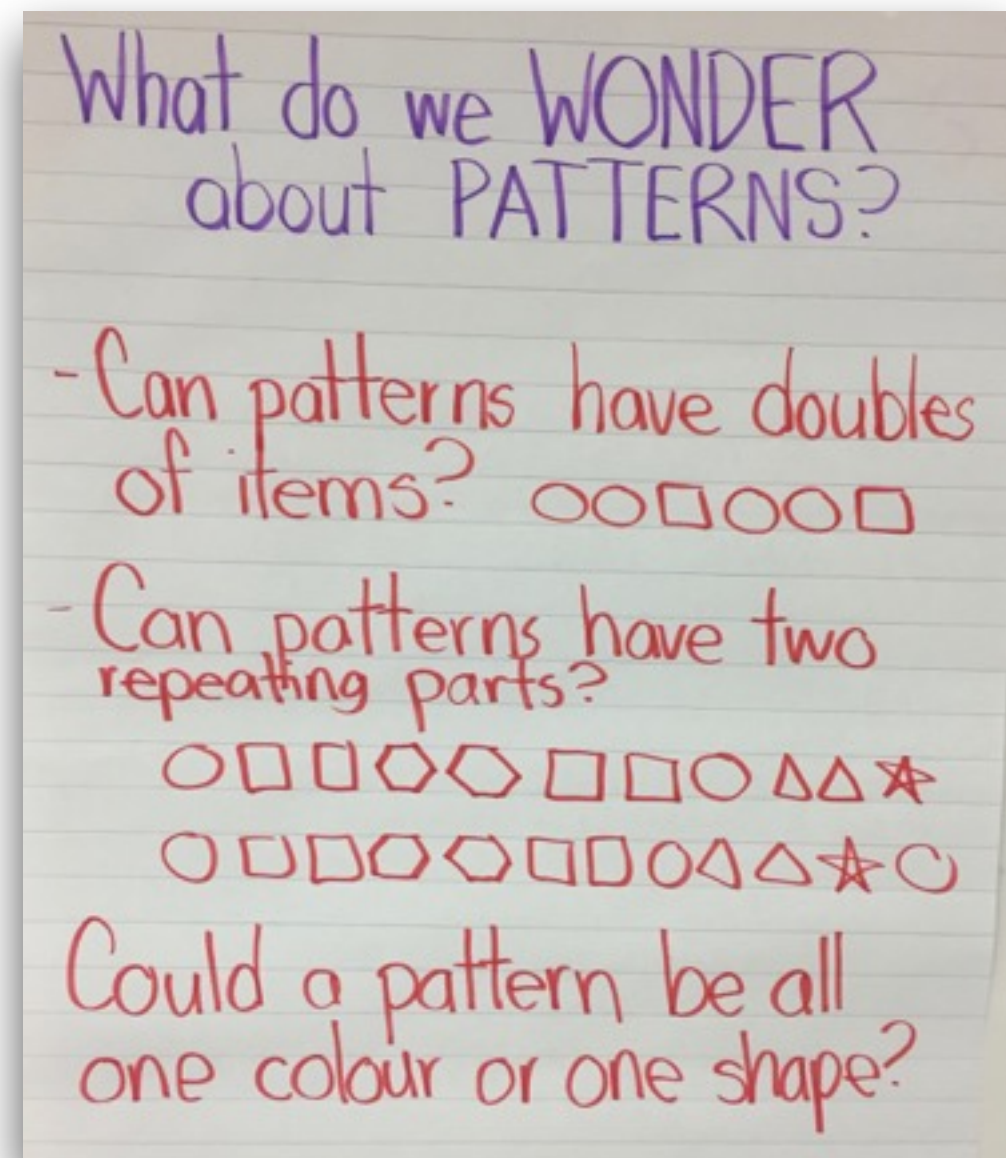 What do we WONDER
about PATTERNS?
- Can patterns have doubles
of items?
- Can patterns have two
repeating parts?
Could a pattern be all
one colour or one shape?